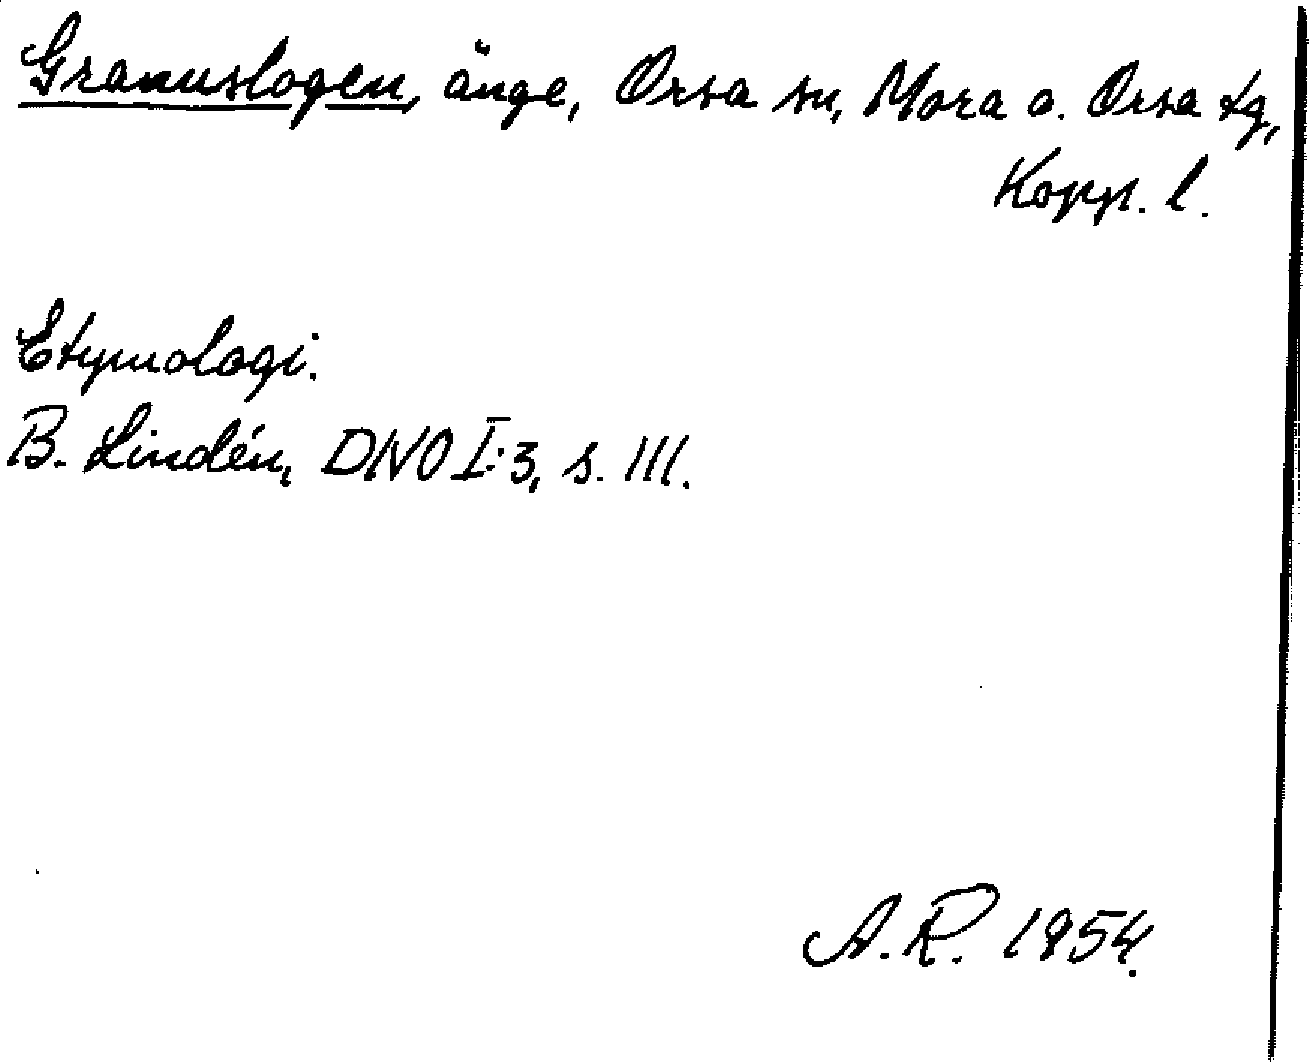 Granuslogen, änge, Orsa sn, Mora o. Orsa tg,
Kopp. l.
Etymologi.
B. Lindén, DNO I:3, s. 111.
A.R. 1954.